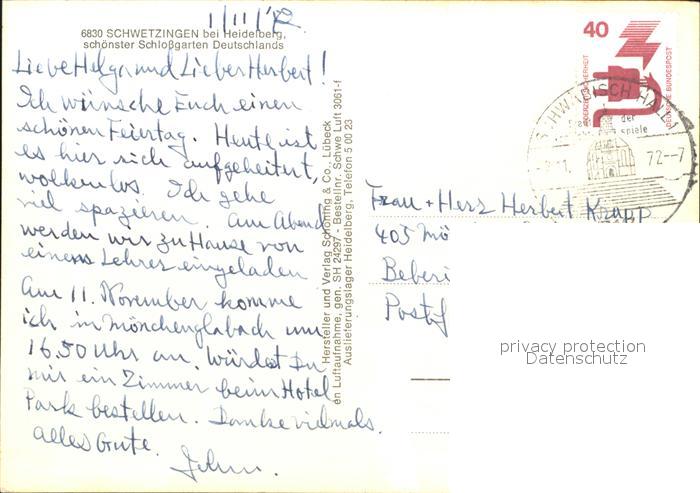 1/11/72
6830 SCHWETZINGEN bei Heidelberg,
schönster Schloßgarten Deutschlands
Liebe Helga und Lieber Herbert!
Ich wünsche Euch einen
schönen Feiertag. Heute ist
es hier sich aufgeheitert,
wolkenlos. Ich gehe
viel spazieren. Am Abend
werden wir zu Hause von
einem Lehrer eingeladen
Am 11. November komme
ich in Mönchenglabach um
16.50 Uhr an. Würdest Du
mir ein Zimmer beim Hotel
Park bestellen. Danke vielmals.
Alles Gute.
John.
Hersteller und Verlag Schöning & Co., Lübeck
en Luftaufnahme, gen. SH 24297 - Bestellnr. Schwe Luft 3061-f
Auslieferungslager Heidelberg, Telefon 3 00 23
40
DEUTSCHE BUNDESPOST
SCHWÄBISCH HALL 1
der
spiele
72--7
Frau + Herr Herbert Krapp
405 Mö
Beberi
Postf
privacy protection
Datenschutz